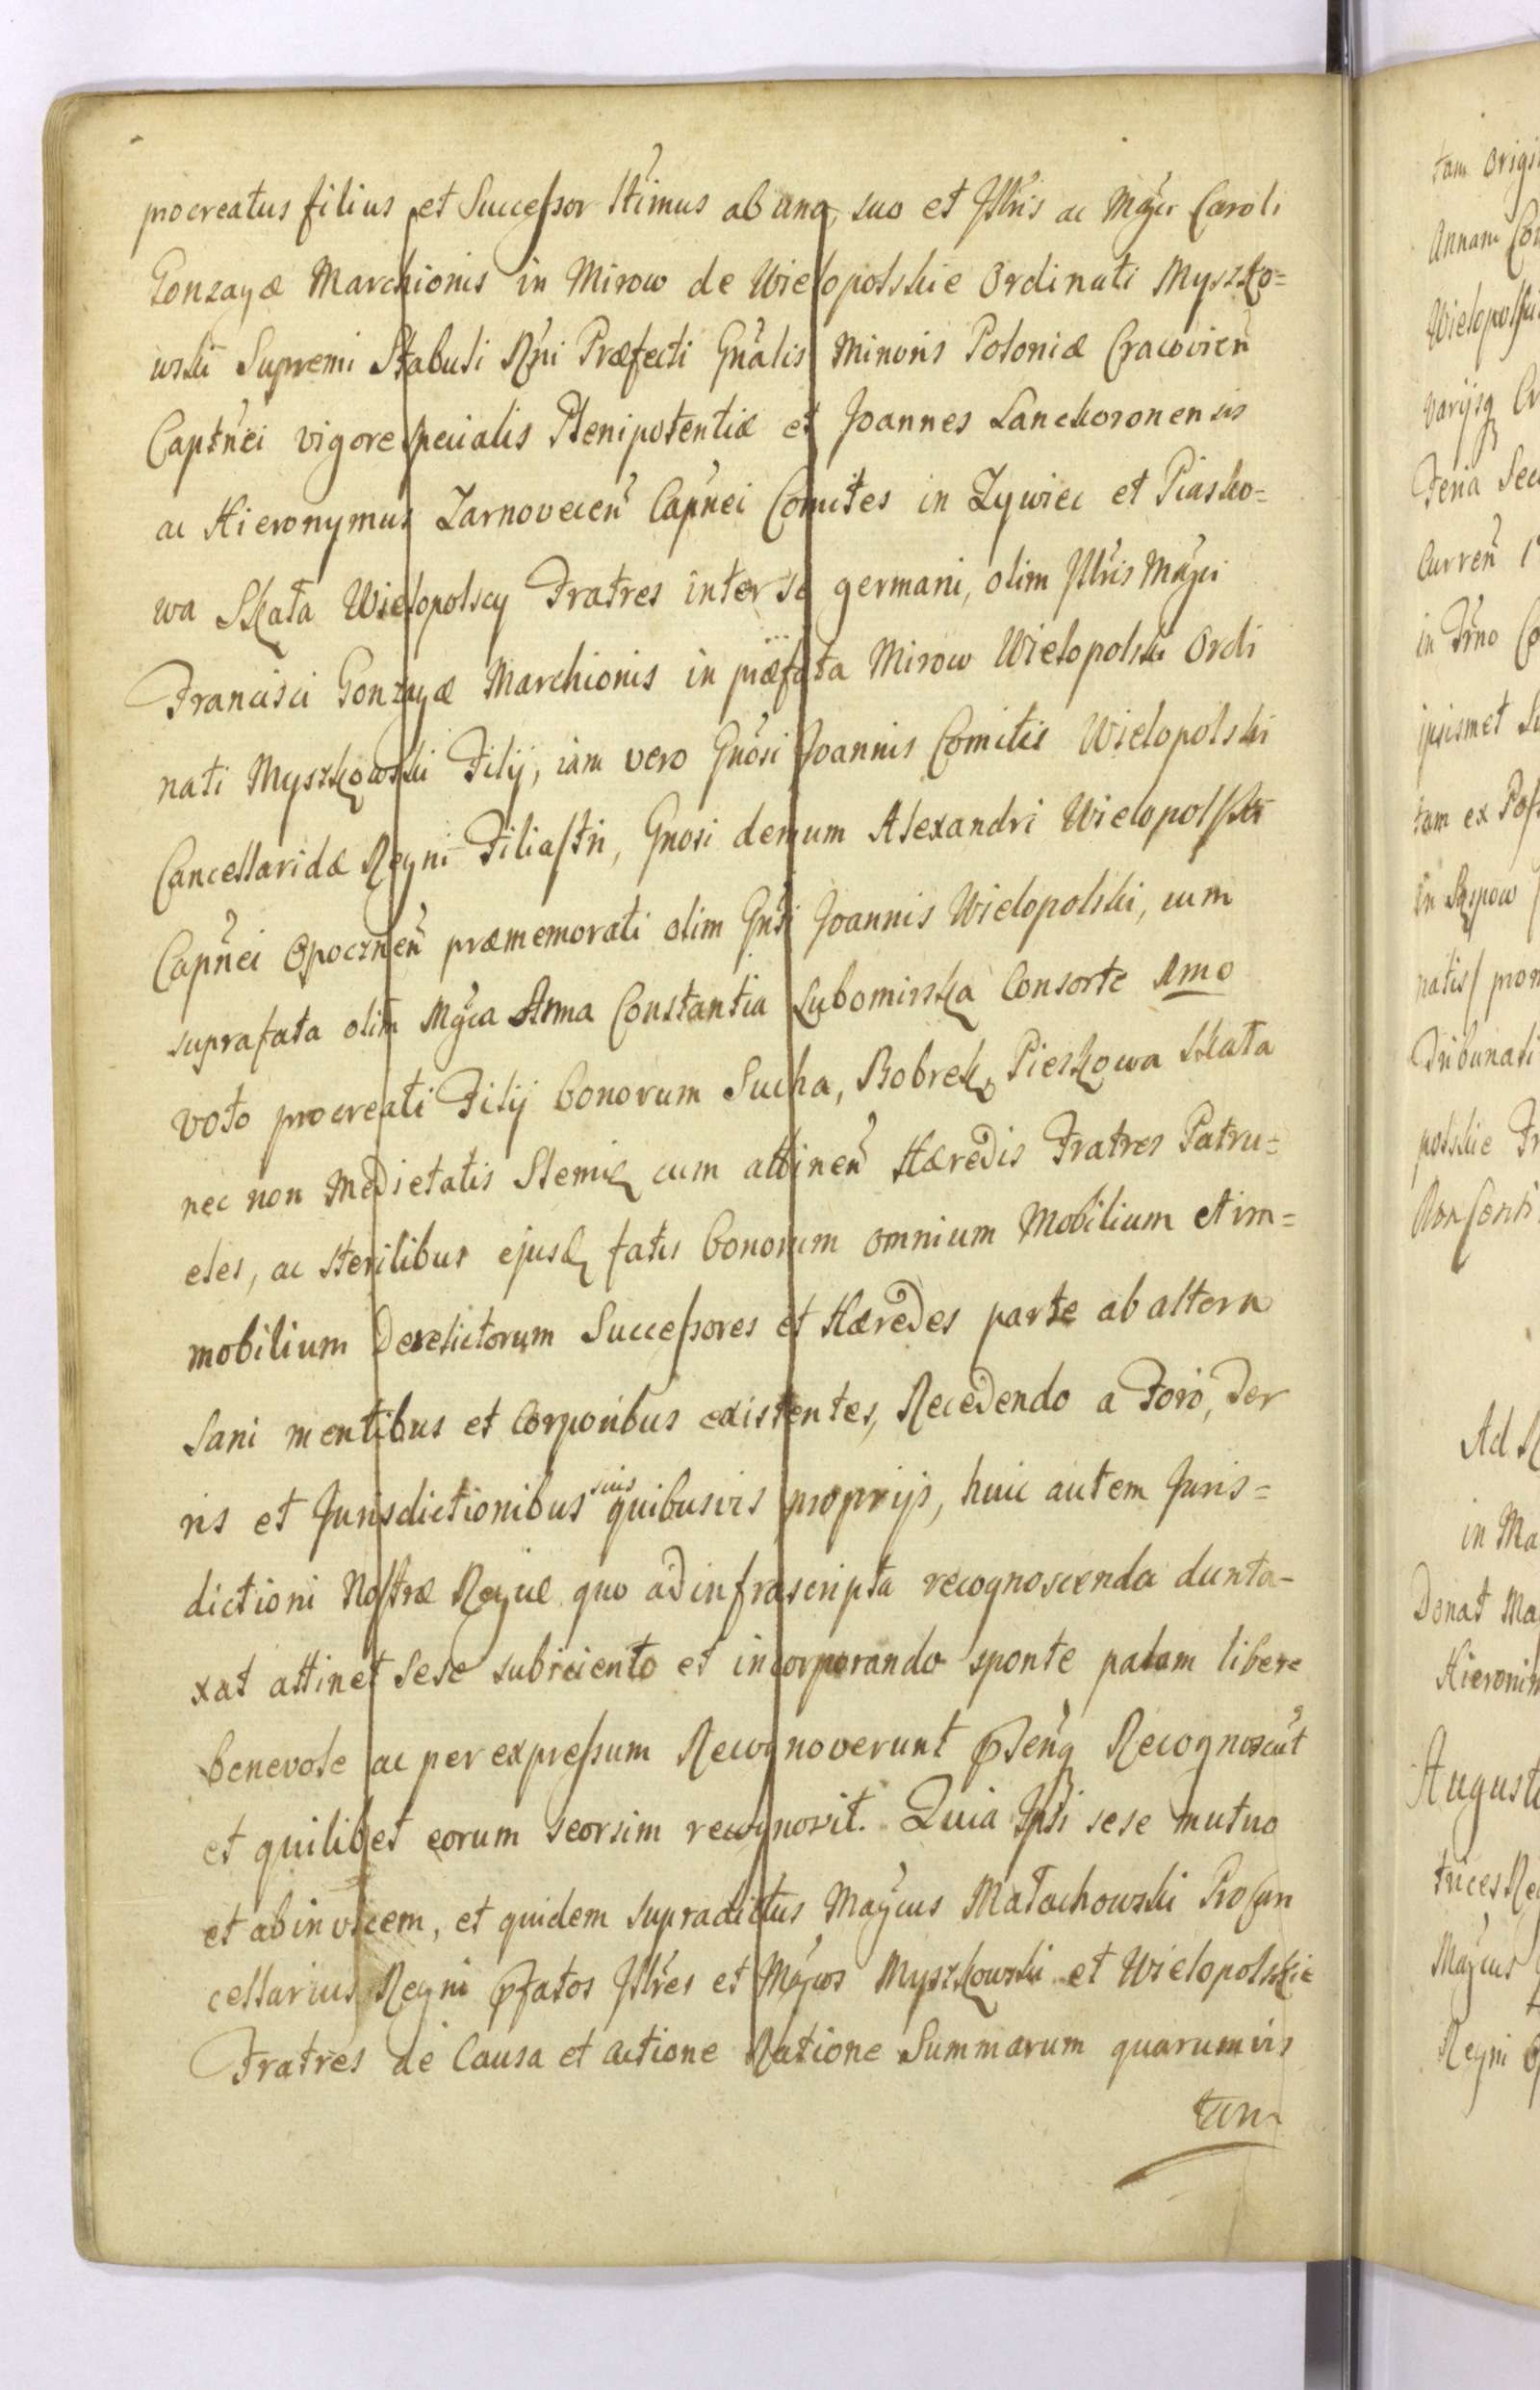 procreatus filius et Successor ltimus ab una, suo et Jllris ac Mgci Caroli
Gonzagæ Marchionis in Mirow de Wielopolskie Ordinati Myszko=
wski Supremi Stabuli Rni Præfecti Gnalis Minoris Poloniæ Cracovien
Captnei vigore specialis Plenipotentiæ et Joannes Lanckoronensis
ac Hieronymus Zarnovecen Capnei Comites in Zywiec et Piasko=
wa Skała Wielopolscy Fratres inter se germani, olim Jllris Mgci
Francisci Gonzagæ Marchionis in præfata Mirow Wielopolski Ordi
nati Myszkowski Filij, iam vero Gnosi Joannis Comitis Wielopolski
Cancellaridæ Regni Filiastri, Gnosi demum Alexandri Wielopolski
Capnei Opocznen præmemorati olim Gnsi Joannis Wielopolski, cum
suprafata olim Mgca Anna Constantia Lubomirska Consorte Amo
voto procreati Filij bonorum Sucha, Bobrek, Pieskowa Skała
nec non Medietatis Slemię cum attinen Hæredis Fratres Patru=
eles, ac sterilibus ejusd fatis bonorum omnium Mobilium et im=
mobilium Derelictorum Successores et Hæredes parte ab altera
Sani mentibus et Corporibus existentes, Recedendo a Foro, Ter
ris et Jurisdictionibus suis quibusvis proprijs, huic autem Juris=
dictioni Nostræ Regiæ quo ad infrascripta recognoscenda dunta-
xat attinet sese subiciento et incorporando sponte palam libere
benevole ac per expressum Recognoverunt pntq Recognoscut
et quilibet eorum seorsim recognovit. Quia Ipsi sese mutuo
et ab invicem, et quidem supradictus Magcus Małachowski Procan
cellarius Regni pfatos Jllres et Mgcos Myszkowski et Wielopolskie
Fratres de Causa et actione Ratione Summarum quarumvis
tam